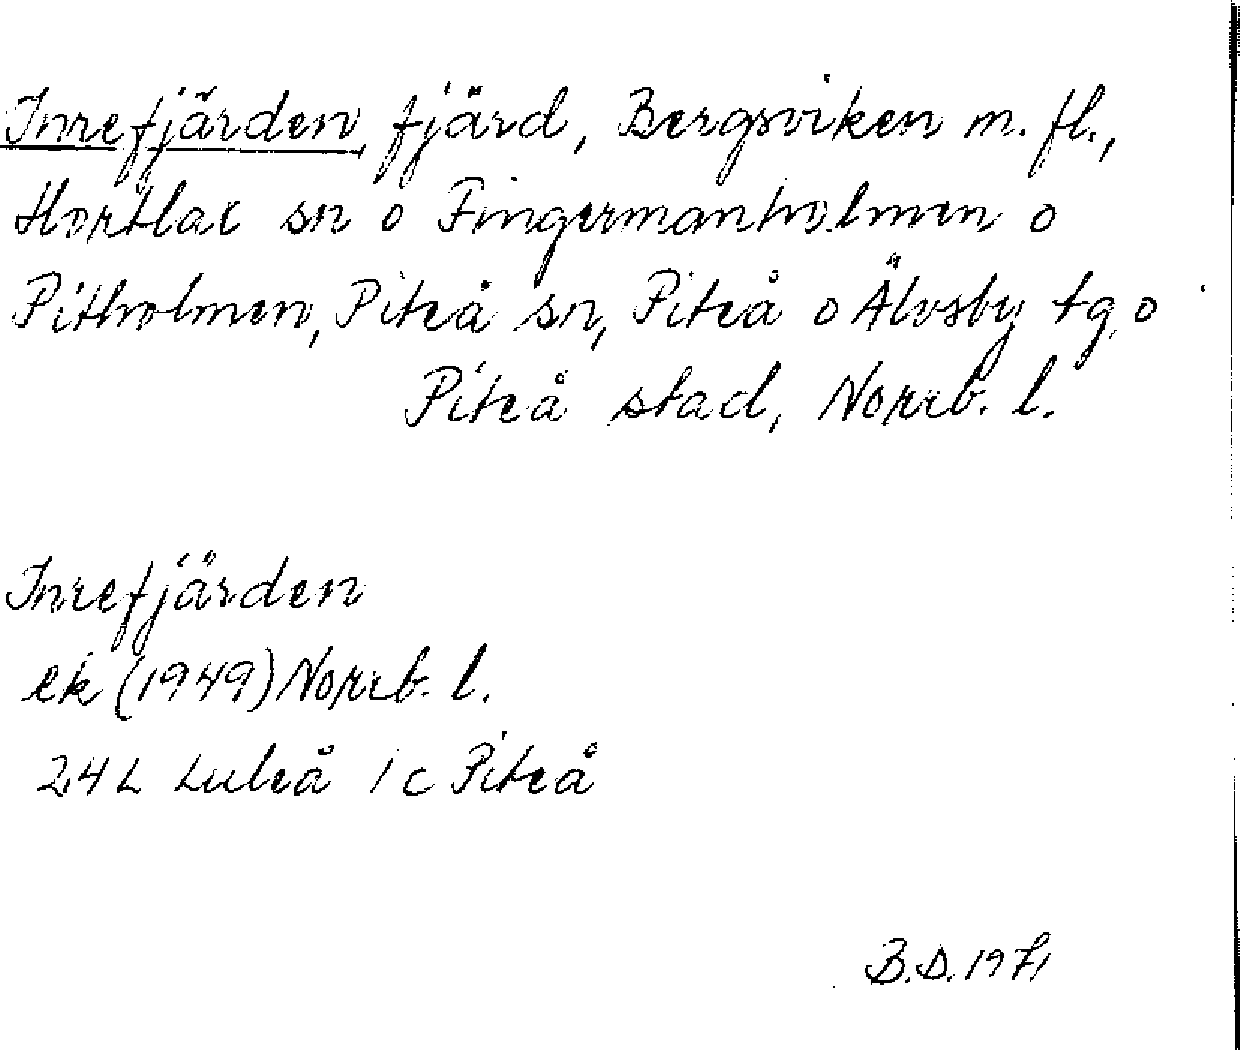 Inrefjärden fjärd, Bergsviken m. fl.,
Hortlax sn o Fingermanholmen o
Pitholmen, Piteå sn, Piteå o Älvsby tg, o
Piteå stad, Norrb. l.
Inrefjärden
ek (1949) Norrb. l.
24L Luleå 1c Piteå
B.D. 1971